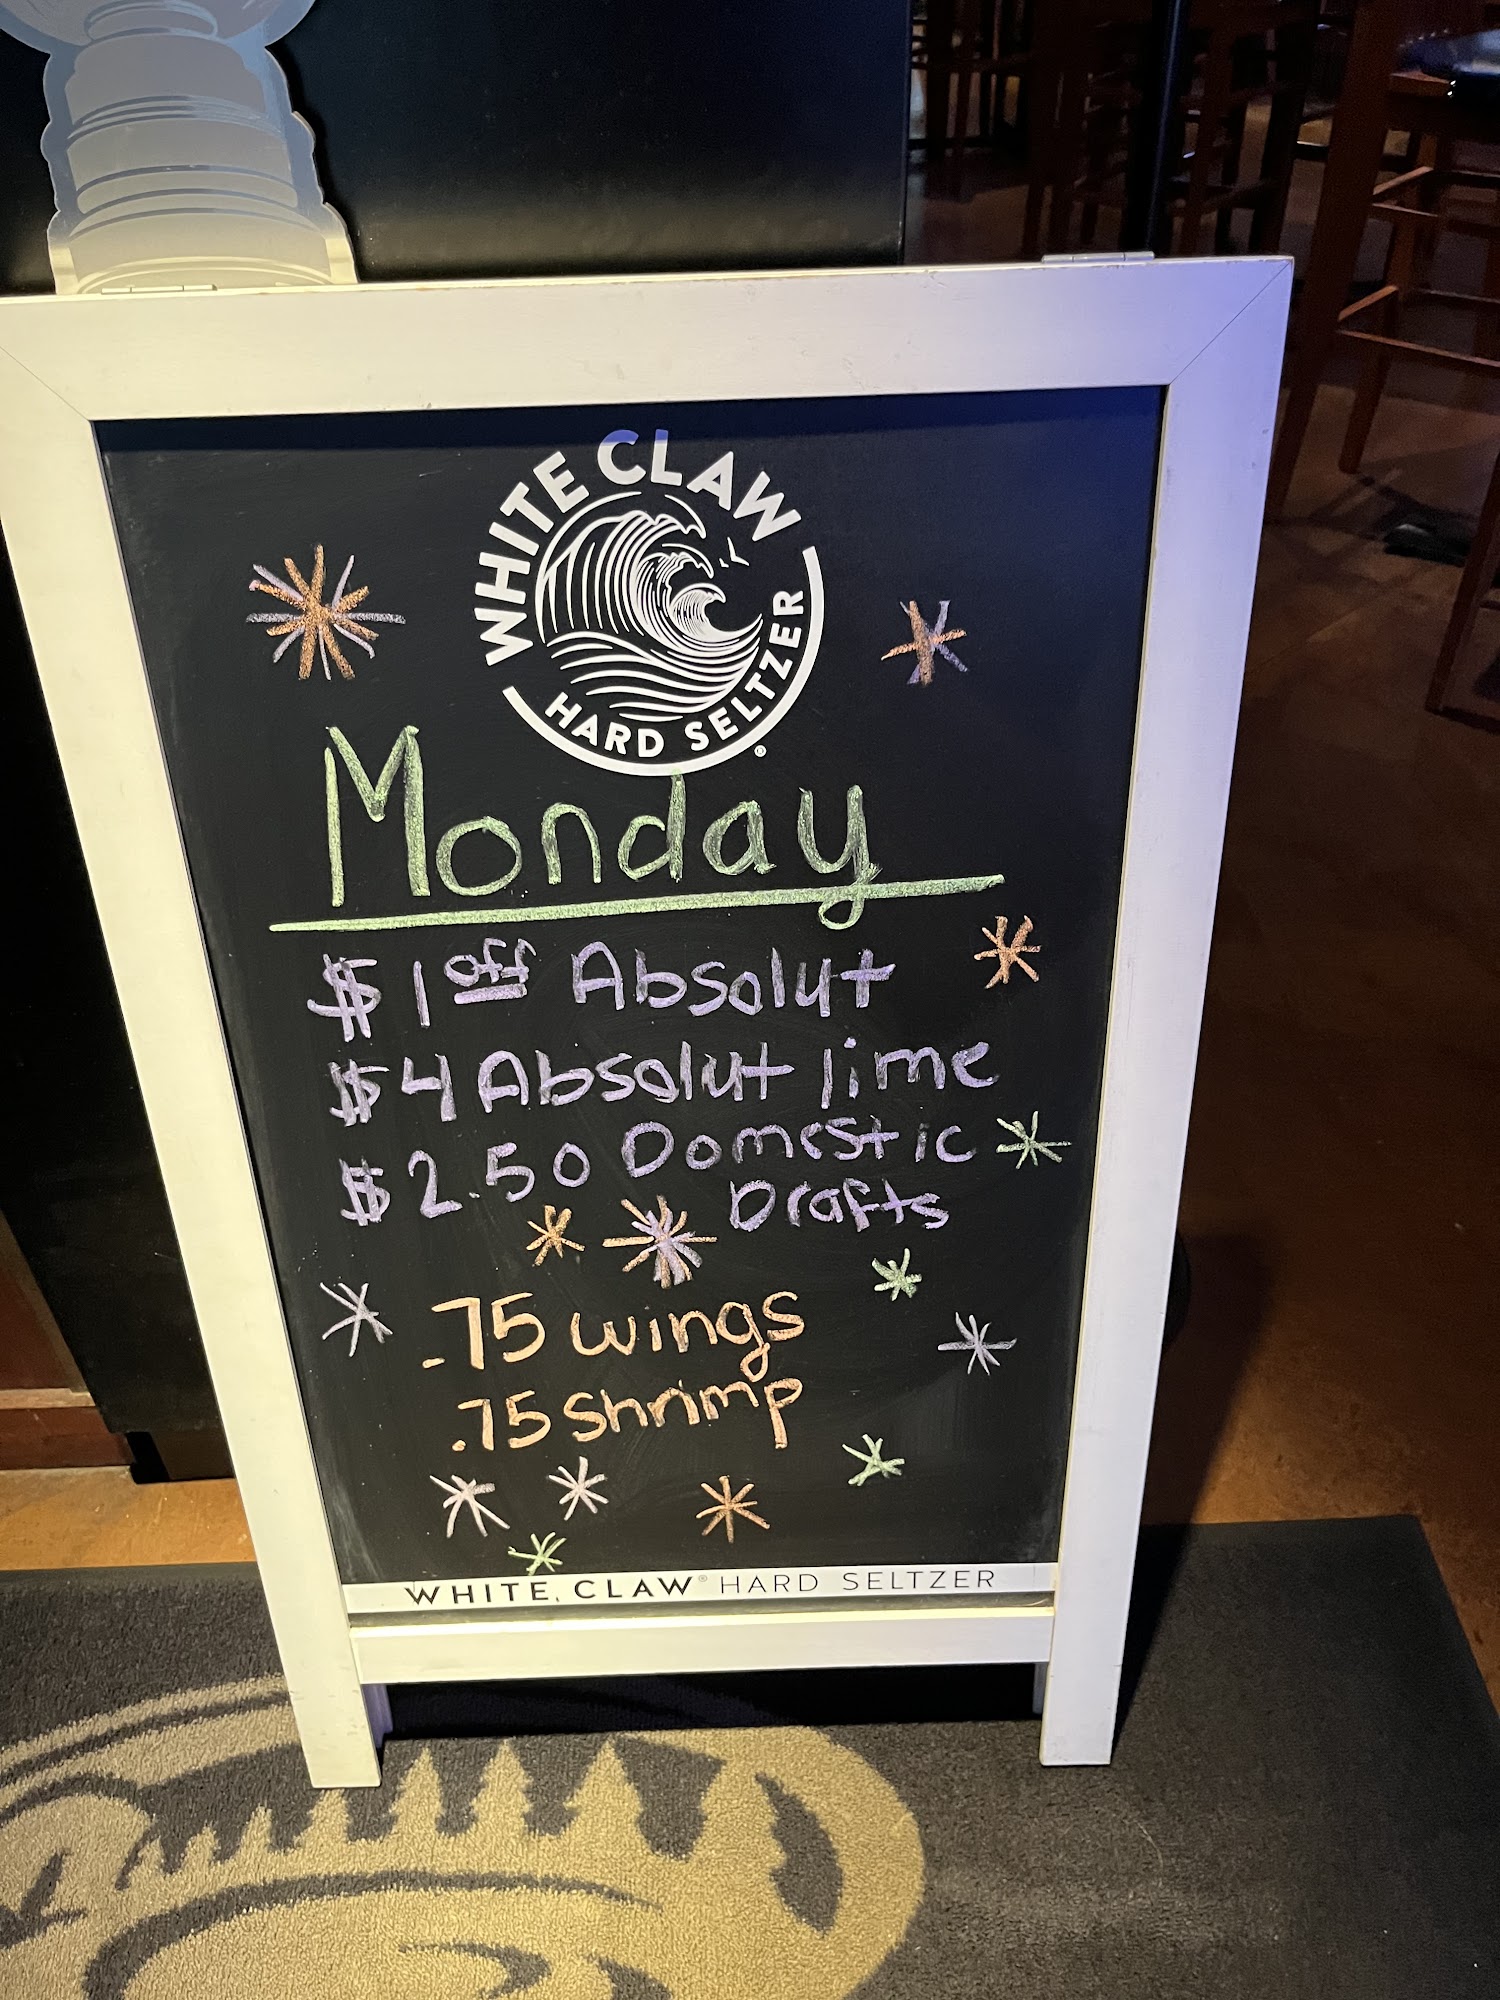 WHITE CLAW
HARD SELTZER
Monday
$1 off Absolut
$4 Absolut lime
$2.50 Domestic
Drafts
.75 wings
.75 Shrimp
WHITE CLAW® HARD SELTZER